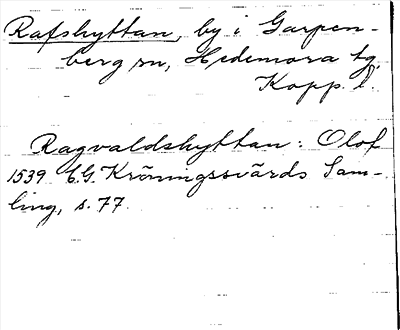 Rafshyttan, by i Garpen-
berg sn, Hedemora tg,
Kopp. l.
Ragvaldshyttan: Olof
1539 C.G. Kröningssvärds Sam-
ling, s. 77.